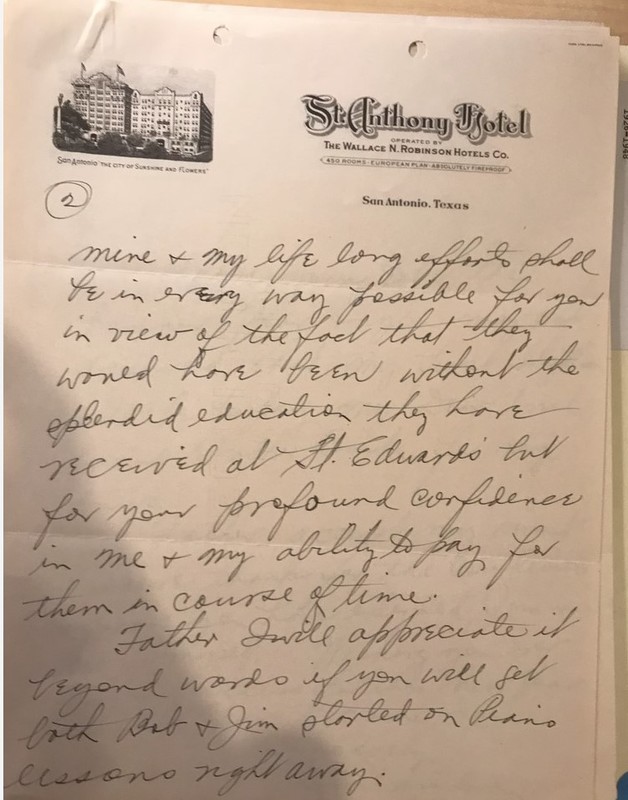 St. Anthony Hotel
OPERATED BY
THE WALLACE N. ROBINSON HOTELS CO.
450 ROOMS - EUROPEAN PLAN - ABSOLUTELY FIREPROOF
San Antonio "THE CITY OF SUNSHINE AND FLOWERS"
San Antonio, Texas
2
mine & my life long efforts shall
be in every way possible for you
in view of the fact that they
would have been without the
splendid education they have
received at St. Edwards but
for your profound confidence
in me & my ability to pay for
them in course of time.
Father I will appreciate it
beyond words if you will get
both Bob & Jim started on Piano
lessons right away.